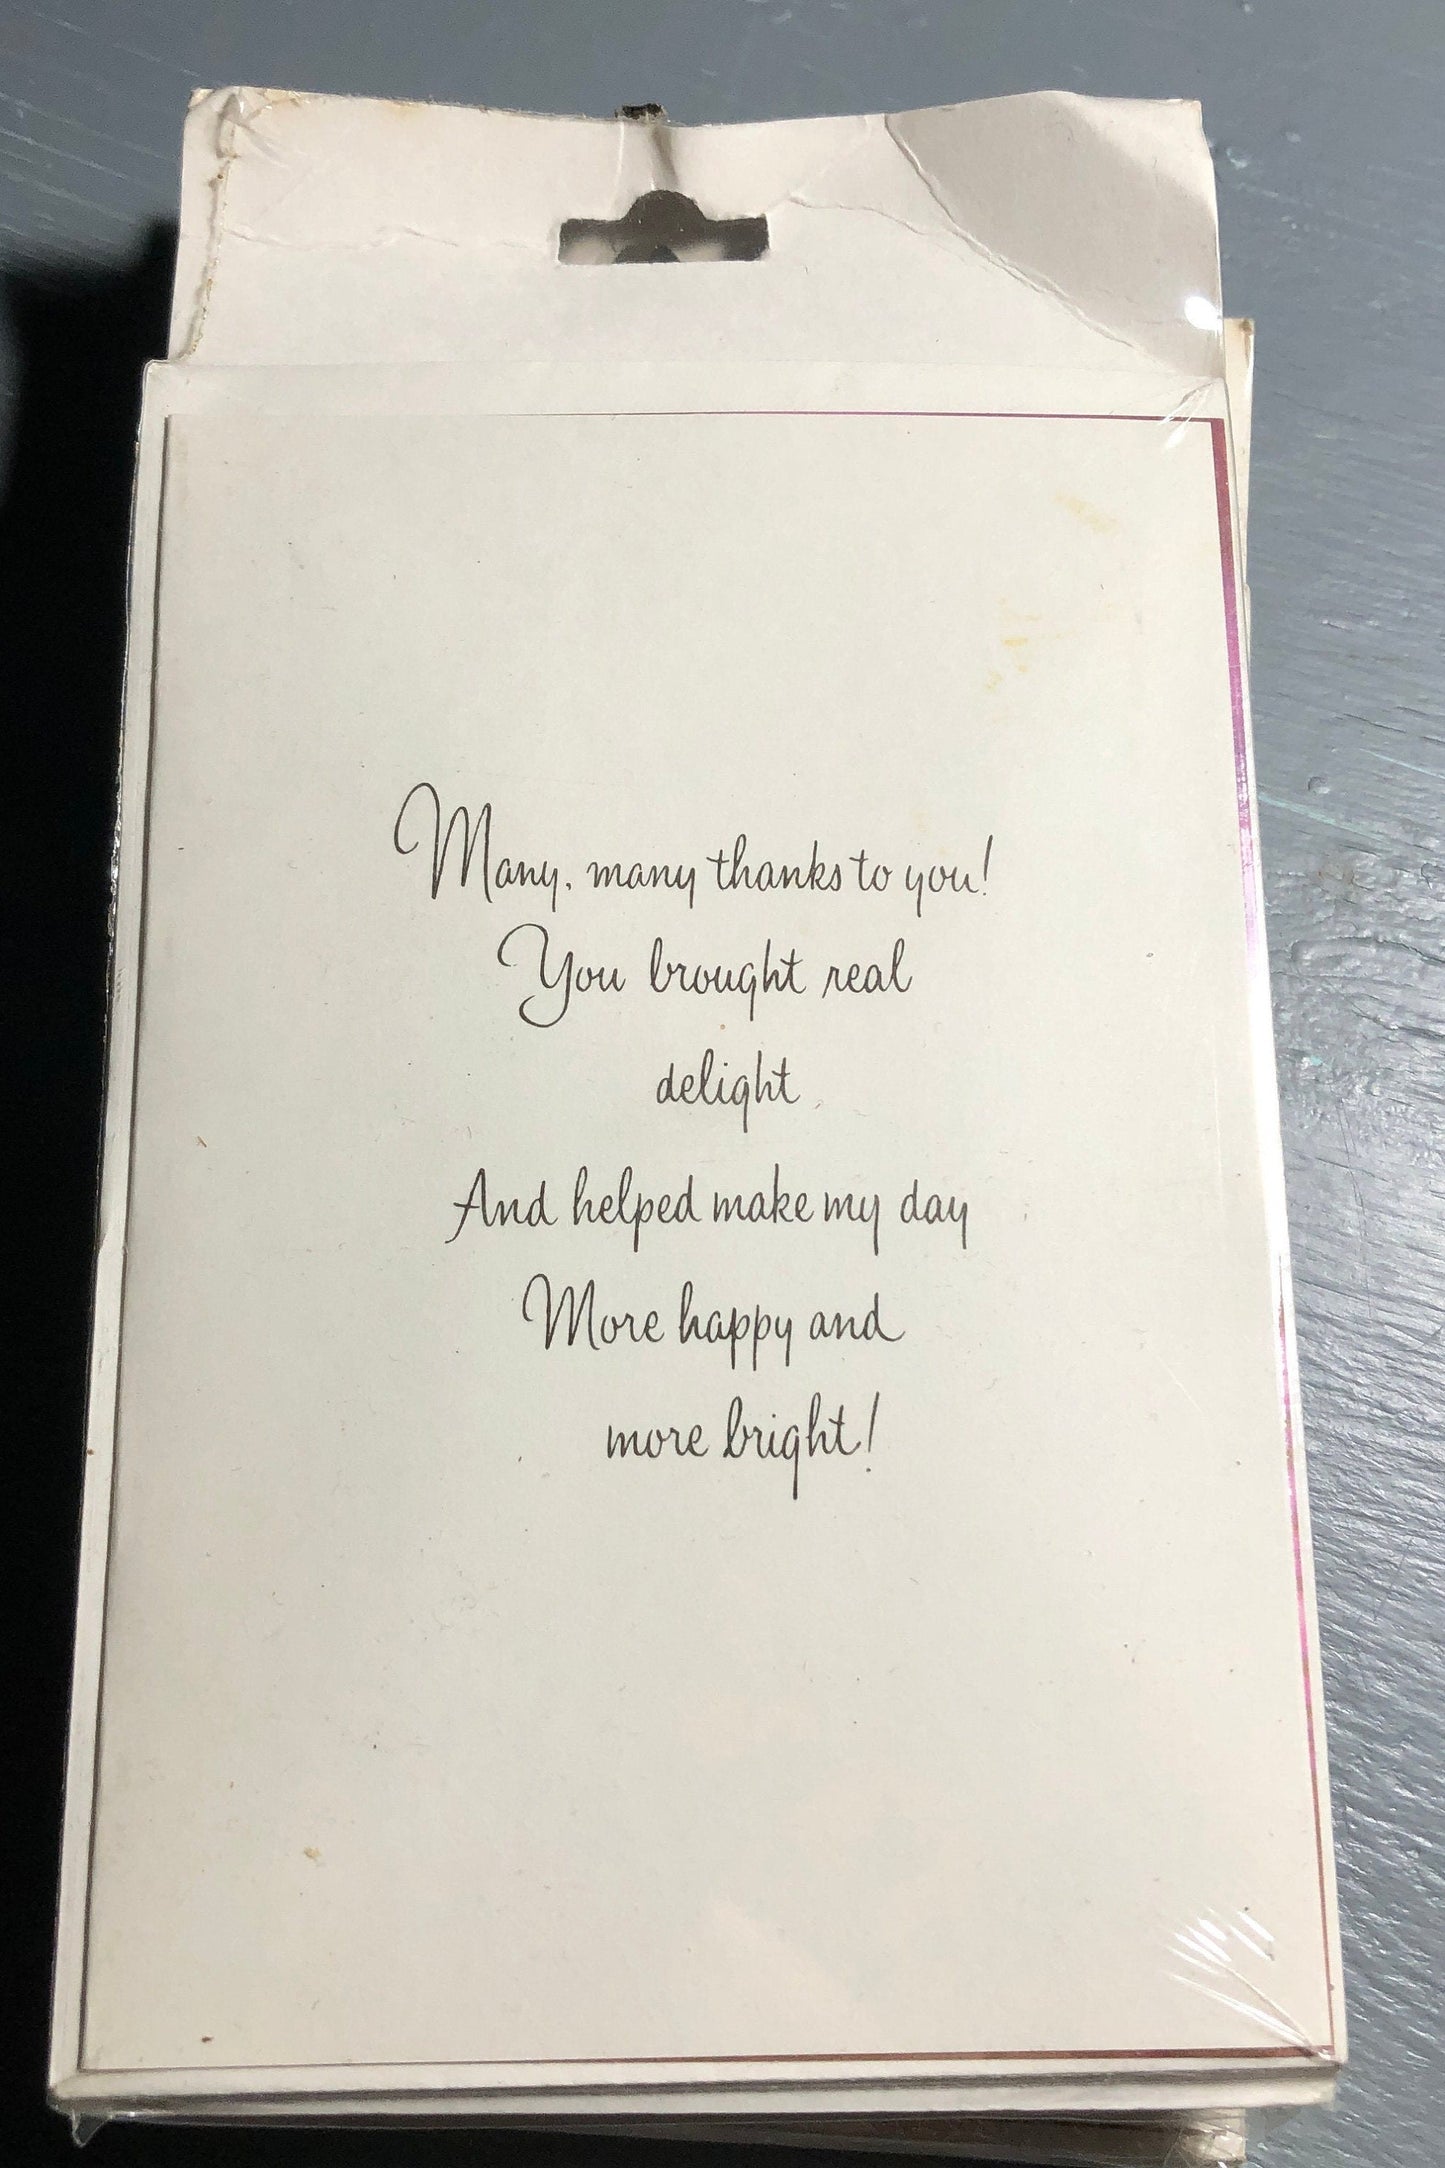 Many, many thanks to you!
You brought real
delight
And helped make my day
More happy and
more bright!